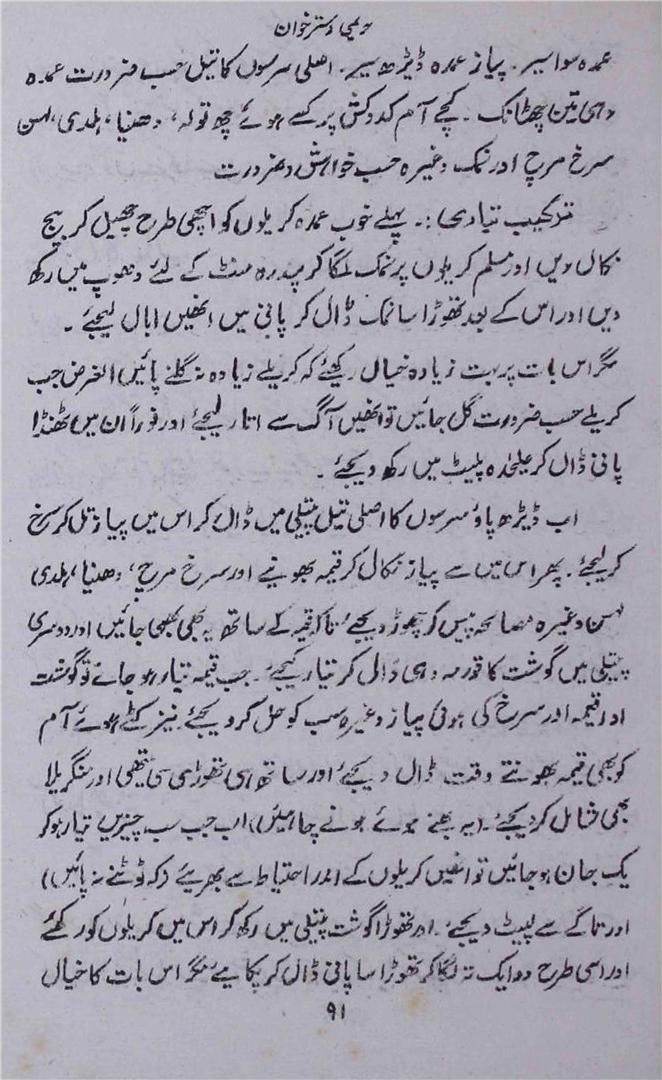 حریمی دسترخوان
عمدہ سوا سیر۔ پیاز عمدہ ڈیڑھ سیر۔ اصلی سرسوں کا تیل حسب ضرورت عمدہ
دہی تین چھٹانک۔ کچے آم کدوکش پر کسے ہوئے چھ تولہ، دھنیا، ہلدی، لہسن
سرخ مرچ اور نمک وغیرہ حسب خواہش و ضرورت
ترکیب تیاری:۔ پہلے خوب عمدہ کریلوں کو اچھی طرح چھیل کر بیج
نکال دیں اور مسلم کریلوں پر نمک لگا کر پندرہ منٹ کے لئے دھوپ میں رکھ
دیں اور اس کے بعد تھوڑا سا نمک ڈال کر پانی میں انھیں ابال لیجئے۔
مگر اس بات پر بہت زیادہ خیال رکھئے کہ کریلے زیادہ نہ گلنے پائیں الغرض جب
کریلے حسب ضرورت گل جائیں تو انھیں آگ سے اتار لیجئے اور فوراً ان میں ٹھنڈا
پانی ڈال کر علیحدہ پلیٹ میں رکھ دیجئے۔
اب ڈیڑھ پاؤ سرسوں کا اصلی تیل پتیلی میں ڈال کر اس میں پیاز تل کر سرخ
کر لیجئے۔ پھر اس میں سے پیاز نکال کر قیمہ بھونئے اور سرخ مرچ، دھنیا، ہلدی
لہسن وغیرہ مصالحہ پیس کر چھوڑ دیجئے تاکہ قیمہ کے ساتھ یہ بھی بھن جائیں اور دوسری
پتیلی میں گوشت کا قورمہ دہی ڈال کر تیار کیجئے۔ جب قیمہ تیار ہو جائے تو گوشت
اور قیمہ اور سرخ کی ہوئی پیاز وغیرہ سب کو حل کر دیجئے۔ نیز کٹے ہوئے آم
کو بھی قیمہ بھونتے وقت ڈال دیجئے اور ساتھ ہی تھوڑی سی میتھی اور منگریلا
بھی شامل کر دیجئے۔ (یہ بھنے ہوئے ہونے چاہئیں) اب جب سب چیزیں تیار ہو کر
یک جان ہو جائیں تو انھیں کریلوں کے اندر احتیاط سے بھریئے (کہ ٹوٹنے نہ پائیں)
اور تاگے سے لپیٹ دیجئے۔ اور تھوڑا گوشت پتیلی میں رکھ کر اس میں کریلوں کو رکھئے
اور اسی طرح دو ایک تہ لگا کر تھوڑا سا پانی ڈال کر پکایئے مگر اس بات کا خیال
۹۱